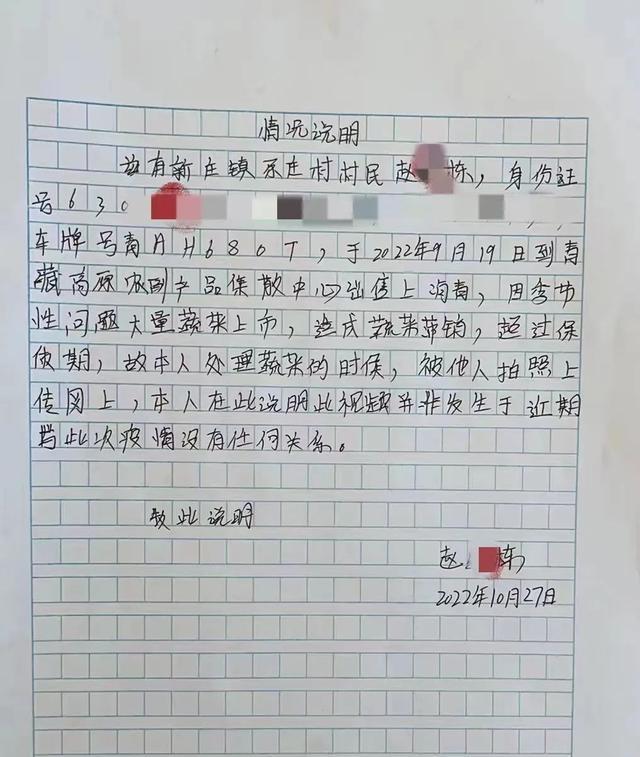 情况说明
兹有新庄镇东庄村村民赵 栋，身份证
号630
车牌号青AH680T，于2022年9月19日到青
藏高原农副产品集散中心出售上海青，因季节
性问题大量蔬菜上市，造成蔬菜滞销，超过保
质期，故本人处理蔬菜的时候，被他人拍照上
传网上，本人在此说明此视频并非发生于近期
与此次疫情没有任何关系。
致此说明
赵 栋
2022年10月27日